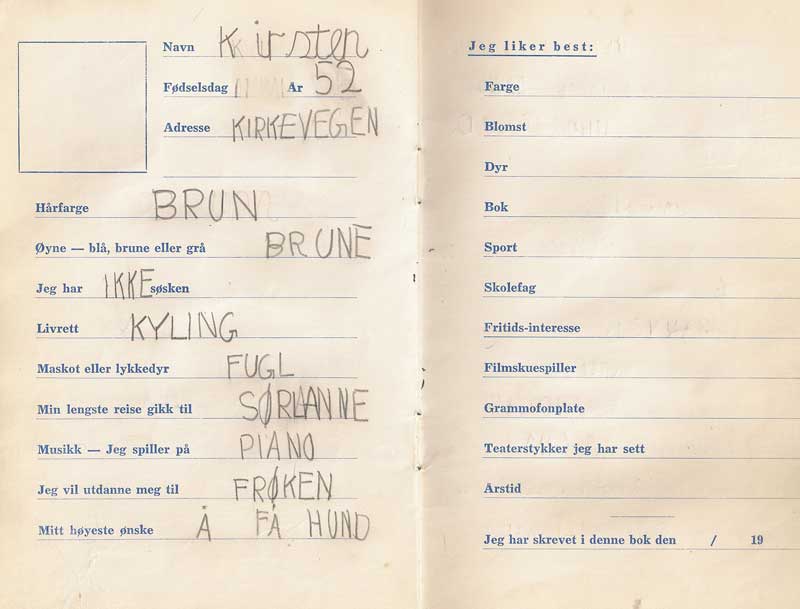 Navn Kirsten
Fødselsdag År 52
Adresse KIRKEVEGEN
Hårfarge BRUN
Øyne — blå, brune eller grå BRUNE
Jeg har IKKE søsken
Livrett KYLING
Maskot eller lykkedyr FUGL
Min lengste reise gikk til SØRLANNE
Musikk — Jeg spiller på PIANO
Jeg vil utdanne meg til FRØKEN
Mitt høyeste ønske Å FÅ HUND
Jeg liker best:
Farge
Blomst
Dyr
Bok
Sport
Skolefag
Fritids-interesse
Filmskuespiller
Grammofonplate
Teaterstykker jeg har sett
Årstid
Jeg har skrevet i denne bok den / 19